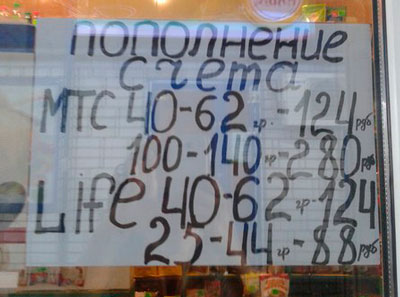 ПОПОЛНЕНИЕ
счета
МТС 40-62 гр. -124 руб
100-140 гр -280 руб
Life 40-62 гр -124
25-44 гр -88 руб